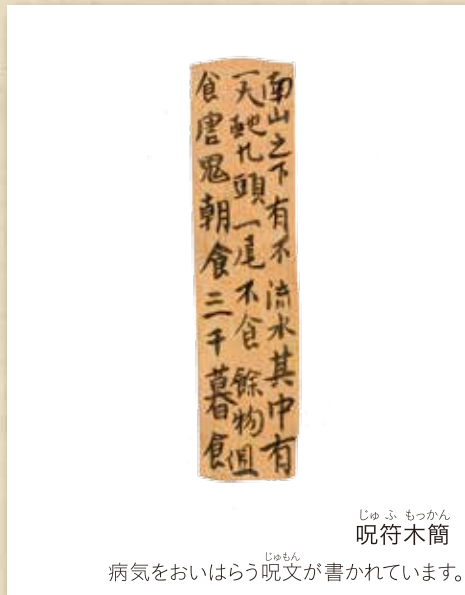 南山之下有不流水其中有
一大虵九頭一尾不食餘物但
食唐鬼朝食三千暮食
じゅふもっかん
呪符木簡
じゅもん
病気をおいはらう呪文が書かれています。